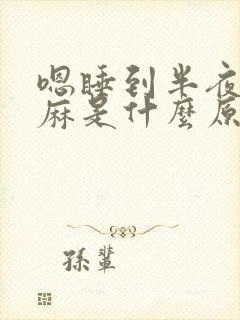 嗯睡到半夜
麻是什麼原
孫輩